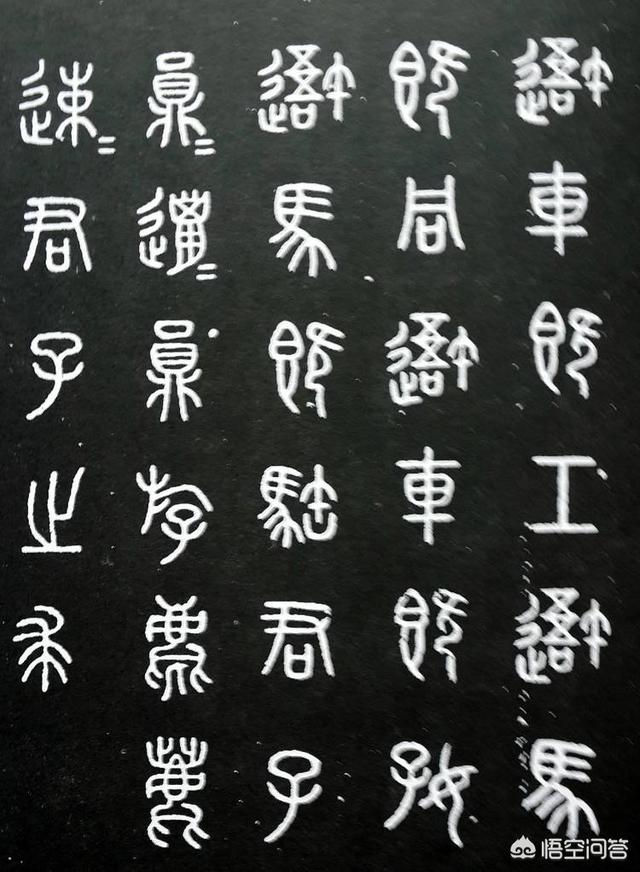 吾車既工吾馬
既同吾車既好
吾馬既君子
員=邋=員斿麀鹿
速=君子之求
悟空问答